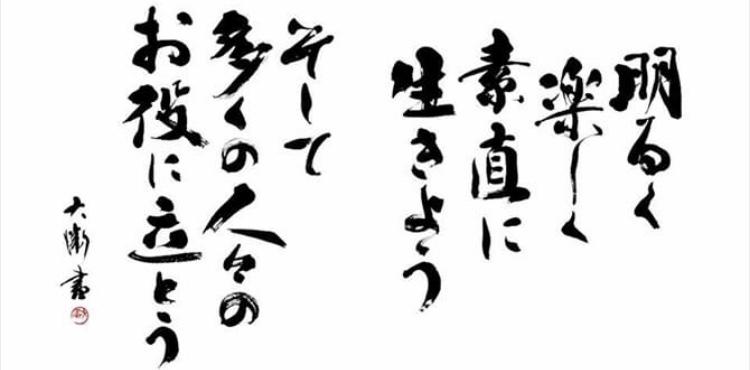 明るく
楽しく
素直に
生きよう
そして
多くの人々の
お役に立とう
大衡書